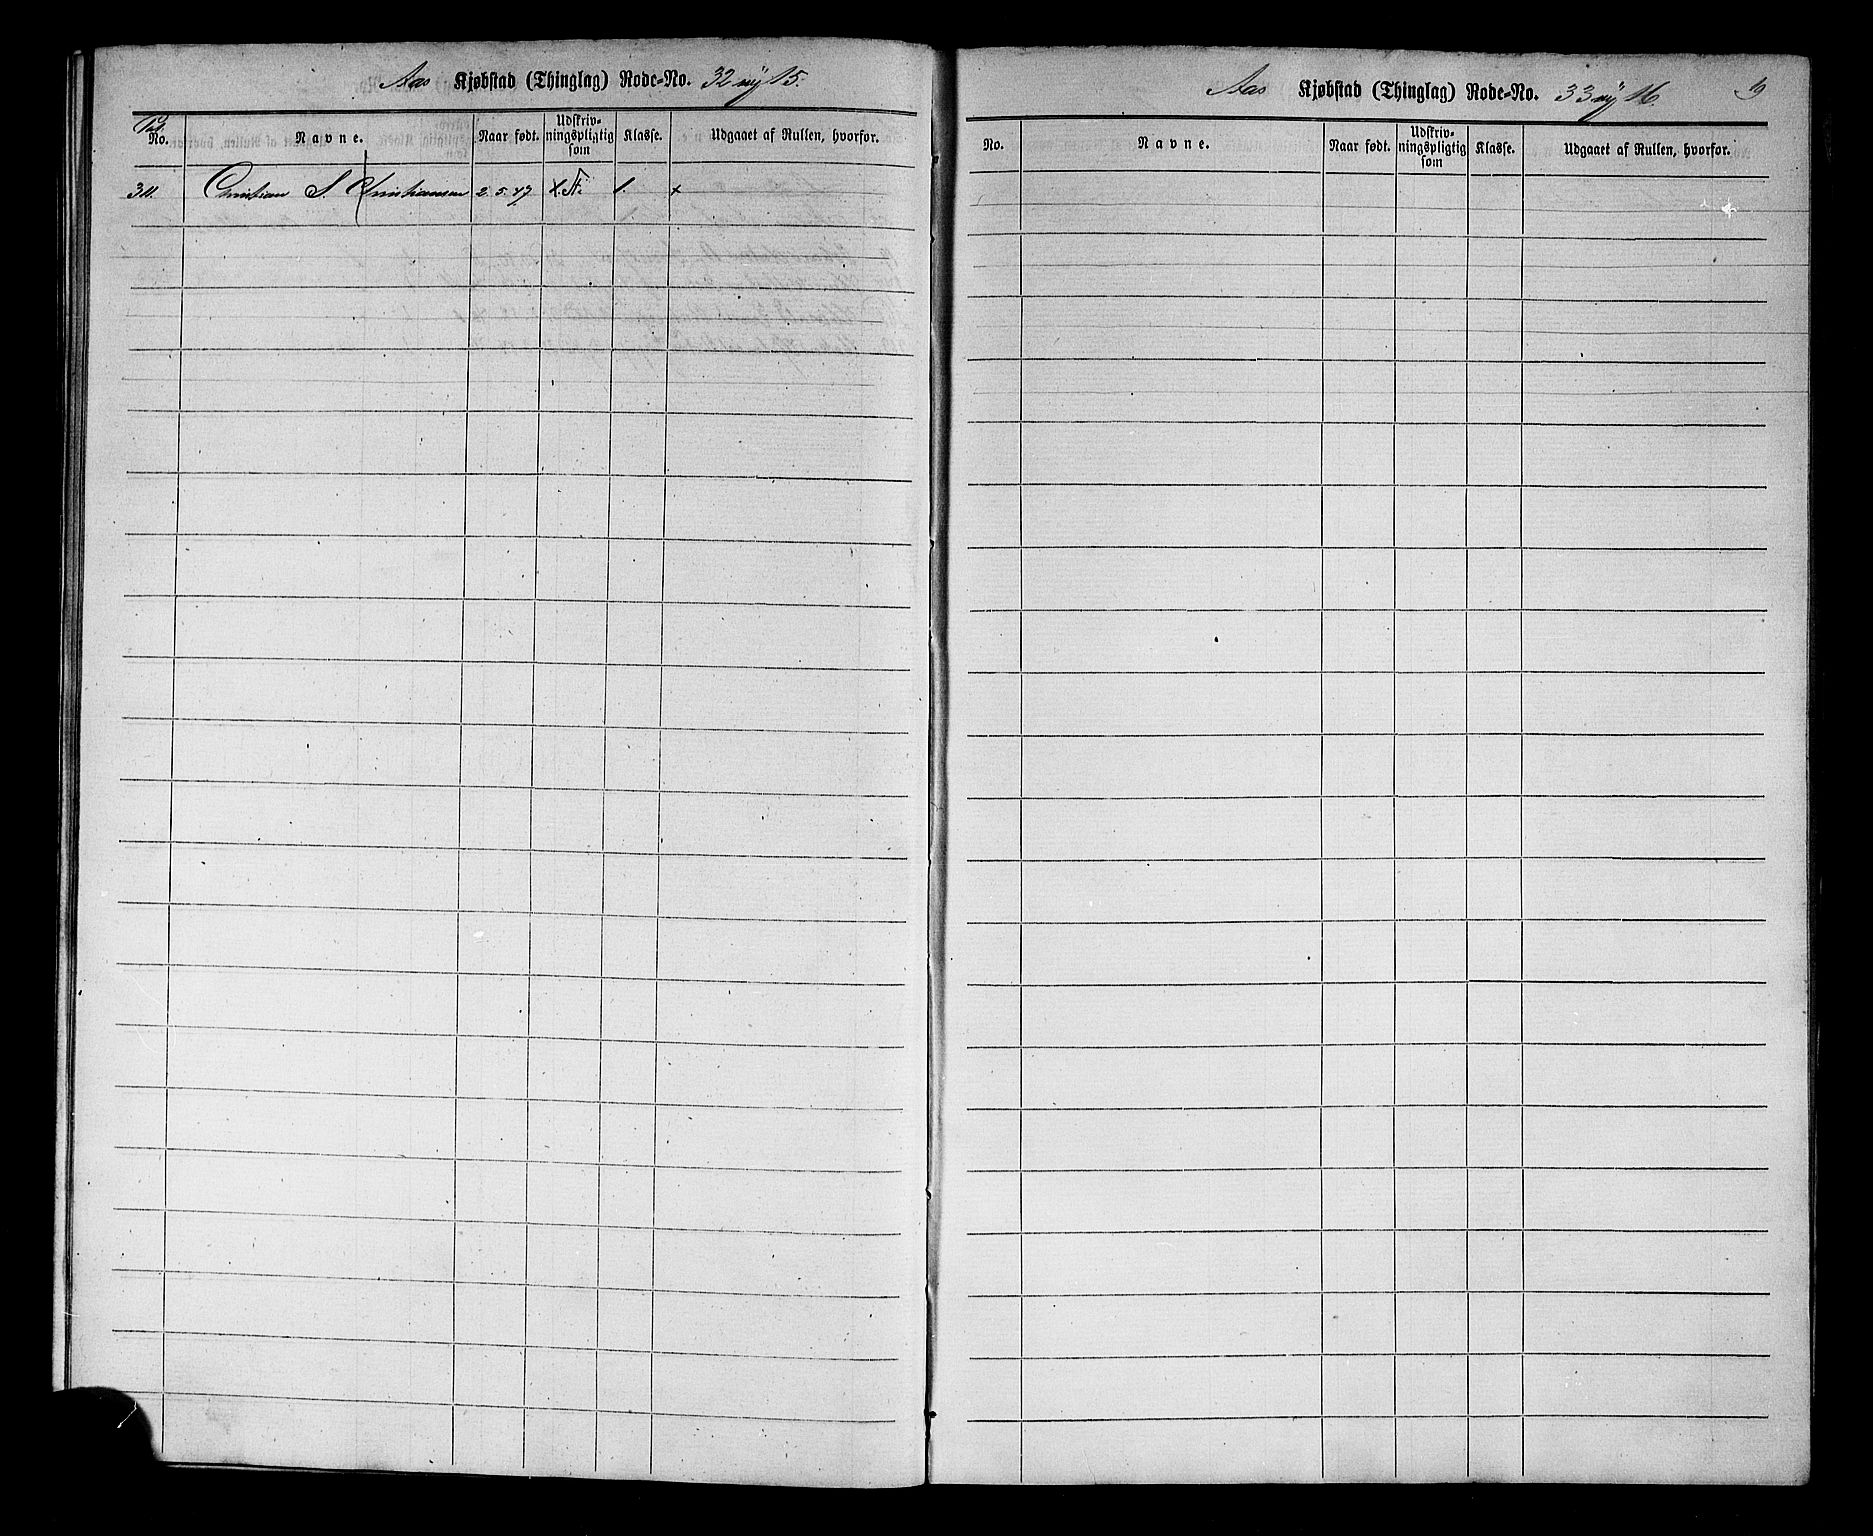 Aas Kjøbstad (Thinglag) Rode-No. 32 ny 15.
No. Navne. Naar født. Udskriv-ningspligtig som Klasse. Udgaaet af Rullen, hvorfor.
311. Christian S. Christiansen 2.5.47 1. +
Aas Kjøbstad (Thinglag) Rode-No. 33 ny 16. 19
No. Navne. Naar født. Udskriv-ningspligtig som Klasse. Udgaaet af Rullen, hvorfor.